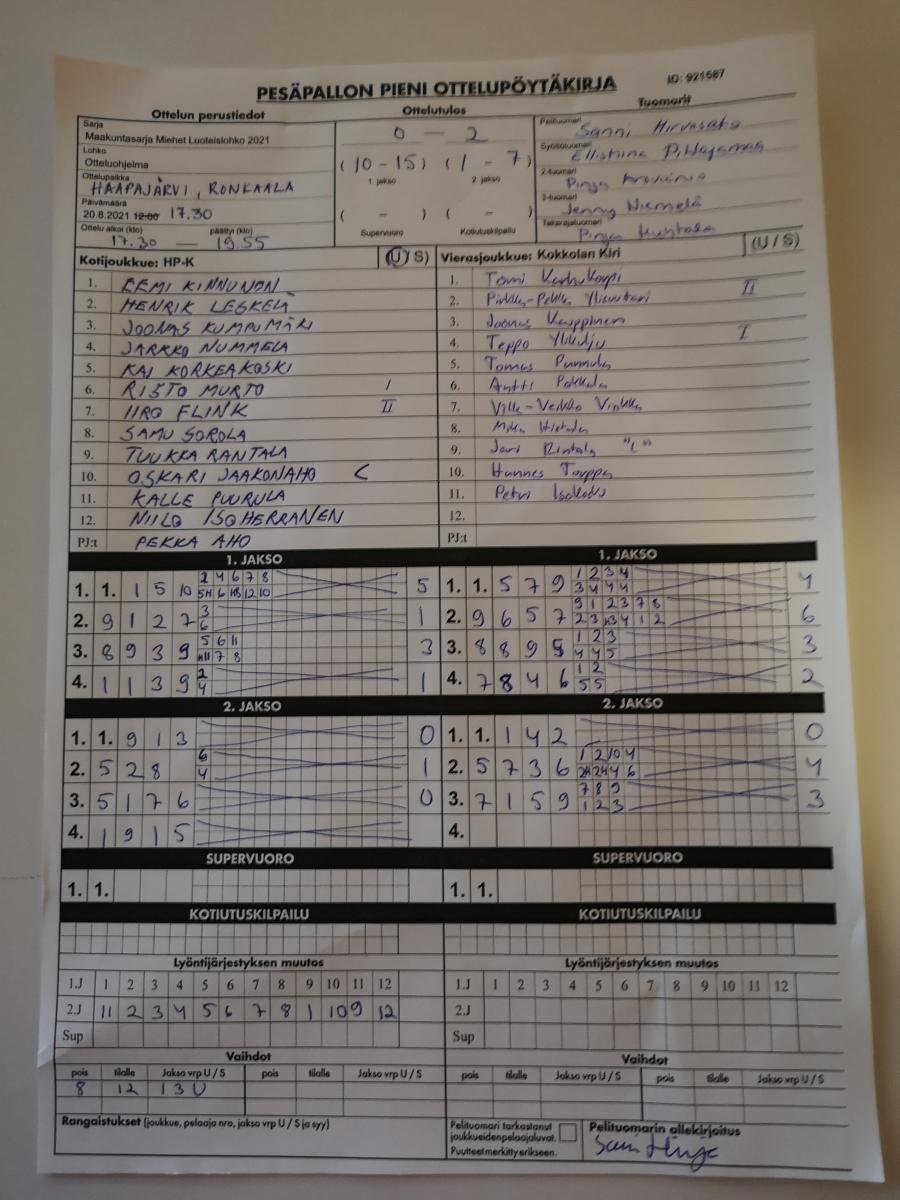 PESÄPALLON PIENI OTTELUPÖYTÄKIRJA
ID: 921587
Ottelun perustiedot
Ottelutulos
Tuomarit
Sarja
Maakuntasarja Miehet Luoteislohko 2021
Lohko
Otteluohjelma
Ottelupaikka
HAAPAJÄRVI, RONKAALA
Päivämäärä
20.8.2021 12.00 17.30
Ottelu alkoi (klo) päättyi (klo)
17.30 — 19.55
0 - 2
(10 - 15) (1 - 7)
1. jakso 2. jakso
( - ) ( - )
Supervuoro Kotiutuskilpailu
Pelituomari
Sanni Hirvasaho
Syöttötuomari
2-tuomari
Pinja
3-tuomari
Jenny Niemelä
Takarajatuomari
Pinja
Kotijoukkue: HP-K (U/S)
1. EEMI KINNUNEN
2. HENRIK LESKELÄ
3. JOONAS KUMPUMÄKI
4. JARKKO NUMMELA
5. KAI KORKEAKOSKI
6. RISTO MURTO I
7. IIRO FLINK II
8. SAMU SOROLA
9. TUUKKA RANTALA
10. OSKARI JAAKONAHO C
11. KALLE PUURULA
12. NIILO ISOHERRANEN
PJ:t PEKKA AHO
Vierasjoukkue: Kokkolan Kiri (U/S)
1. Tomi Karhukorpi
2. Pirkka-Pekka II
3. Joonas Kauppinen
4. Teppo I
5. Tomas
6. Antti Pokkala
7. Ville-Veikko
8. Mika Hietala
9. Jari Rintala "C"
10. Hannes Torppa
11. Petri Isokoski
12.
PJ:t
1. JAKSO
1. 1. 1 5 10 2 4 6 7 8 5
2. 9 1 2 7 3 6 1
3. 8 9 3 9 5 6 11 3
4. 1 1 3 9 2 4 1
1. JAKSO
1. 1. 5 7 9 1 2 3 4 3 4 4 4 4
2. 9 6 5 7 9 1 2 3 7 8 6
3. 8 8 9 5 1 2 3 4 4 5 3
4. 7 8 4 6 1 2 5 5 2
2. JAKSO
1. 1. 9 1 3 0
2. 5 2 8 6 4 1
3. 5 1 7 6 0
4. 1 9 1 5
2. JAKSO
1. 1. 1 4 2 0
2. 5 7 3 6 1 2 10 4 4
3. 7 1 5 9 7 8 9 1 2 3 3
4.
SUPERVUORO
1. 1.
SUPERVUORO
1. 1.
KOTIUTUSKILPAILU
KOTIUTUSKILPAILU
Lyöntijärjestyksen muutos
1.J 1 2 3 4 5 6 7 8 9 10 11 12
2.J 11 2 3 4 5 6 7 8 1 10 9 12
Sup
Lyöntijärjestyksen muutos
1.J 1 2 3 4 5 6 7 8 9 10 11 12
2.J
Sup
Vaihdot
pois tilalle Jakso vrp U / S pois tilalle Jakso vrp U / S
8 12 1 3 U
Vaihdot
pois tilalle Jakso vrp U / S pois tilalle Jakso vrp U / S
Rangaistukset (joukkue, pelaaja nro, jakso vrp U / S ja syy)
Pelituomari tarkastanut
joukkueidenpelaajaluvat.
Puutteet merkitty erikseen.
Pelituomarin allekirjoitus